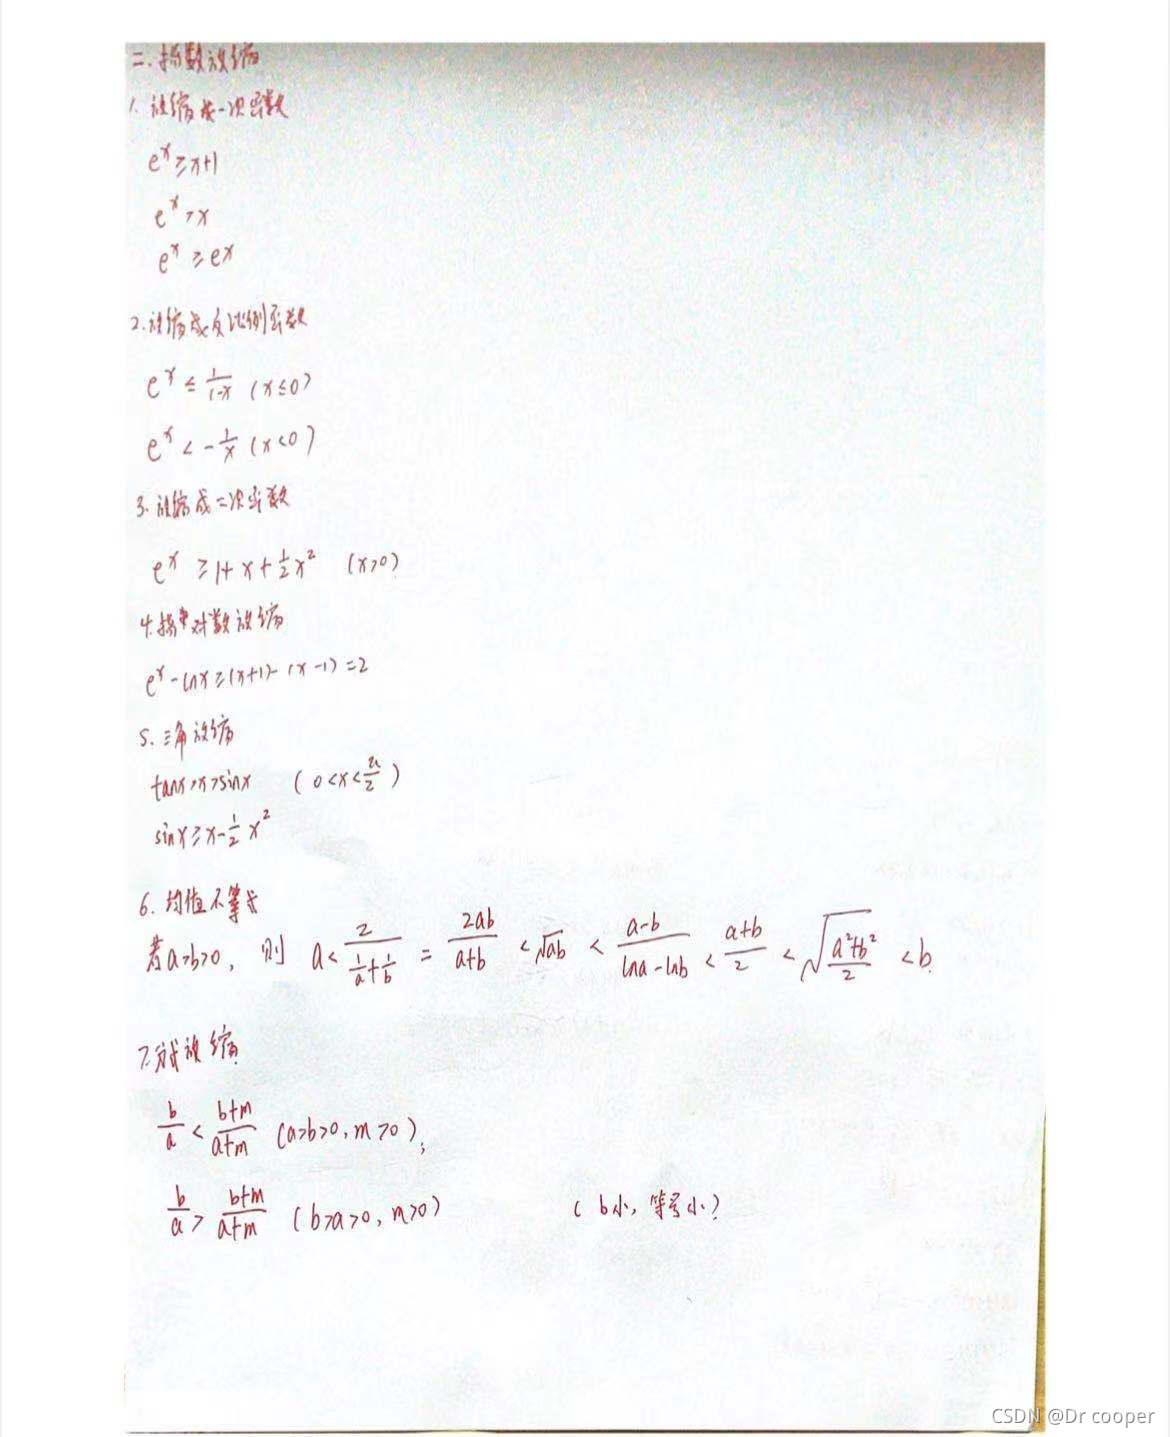 二.指数放缩
1. 放缩成一次函数
e^x ≥ x+1
e^x > x
e^x ≥ ex
2. 放缩成反比例函数
e^x ≤ 1/(1-x) (x≤0)
e^x < -1/x (x<0)
3. 放缩成二次函数
e^x ≥ 1+x+1/2x² (x>0)
4.指对数放缩
e^x-lnx≥(x+1)-(x-1)=2
5. 三角放缩
tanx>x>sinx (0<x<π/2)
sinx≥x-1/2x²
6. 均值不等式
若a>b>0, 则 a< 2/(1/a+1/b) = 2ab/(a+b) < √ab < (a-b)/(lna-lnb) < (a+b)/2 < √((a²+b²)/2) < b.
7. 放缩
b/a < (b+m)/(a+m) (a>b>0, m>0);
b/a > (b+m)/(a+m) (b>a>0, m>0) (b小, 等号小)
CSDN @Dr cooper